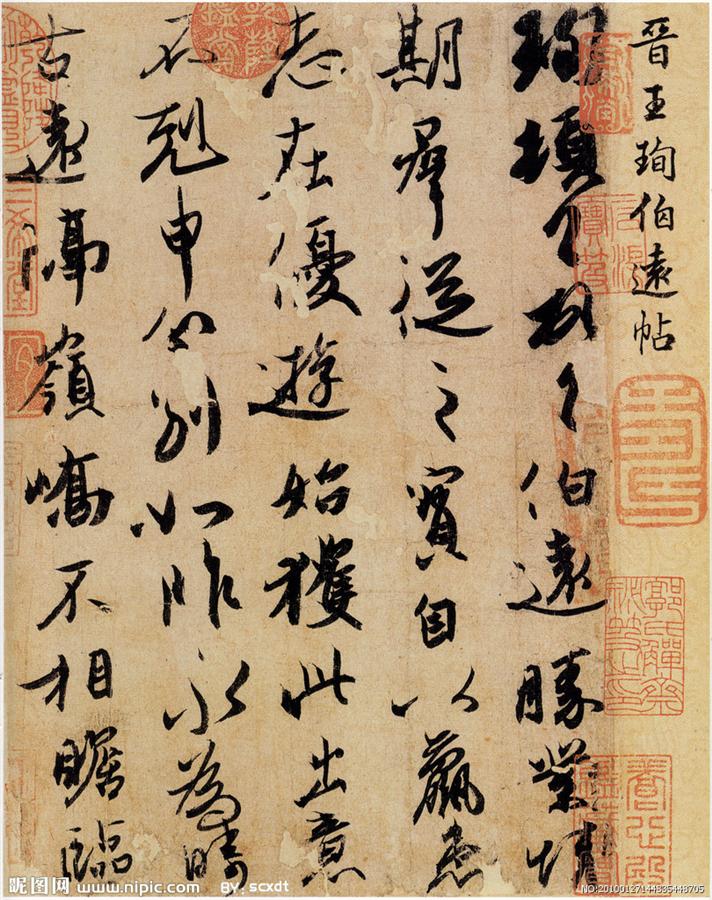 晉王珣伯遠帖
珣頓首頓首伯遠勝業情
期羣從之寶自以羸患
志在優遊始獲此出意
不剋申分別如昨永為疇
古遠隔嶺嶠不相瞻臨
昵图网 www.nipic.com BY: scxdt
NO:20100127144835448705